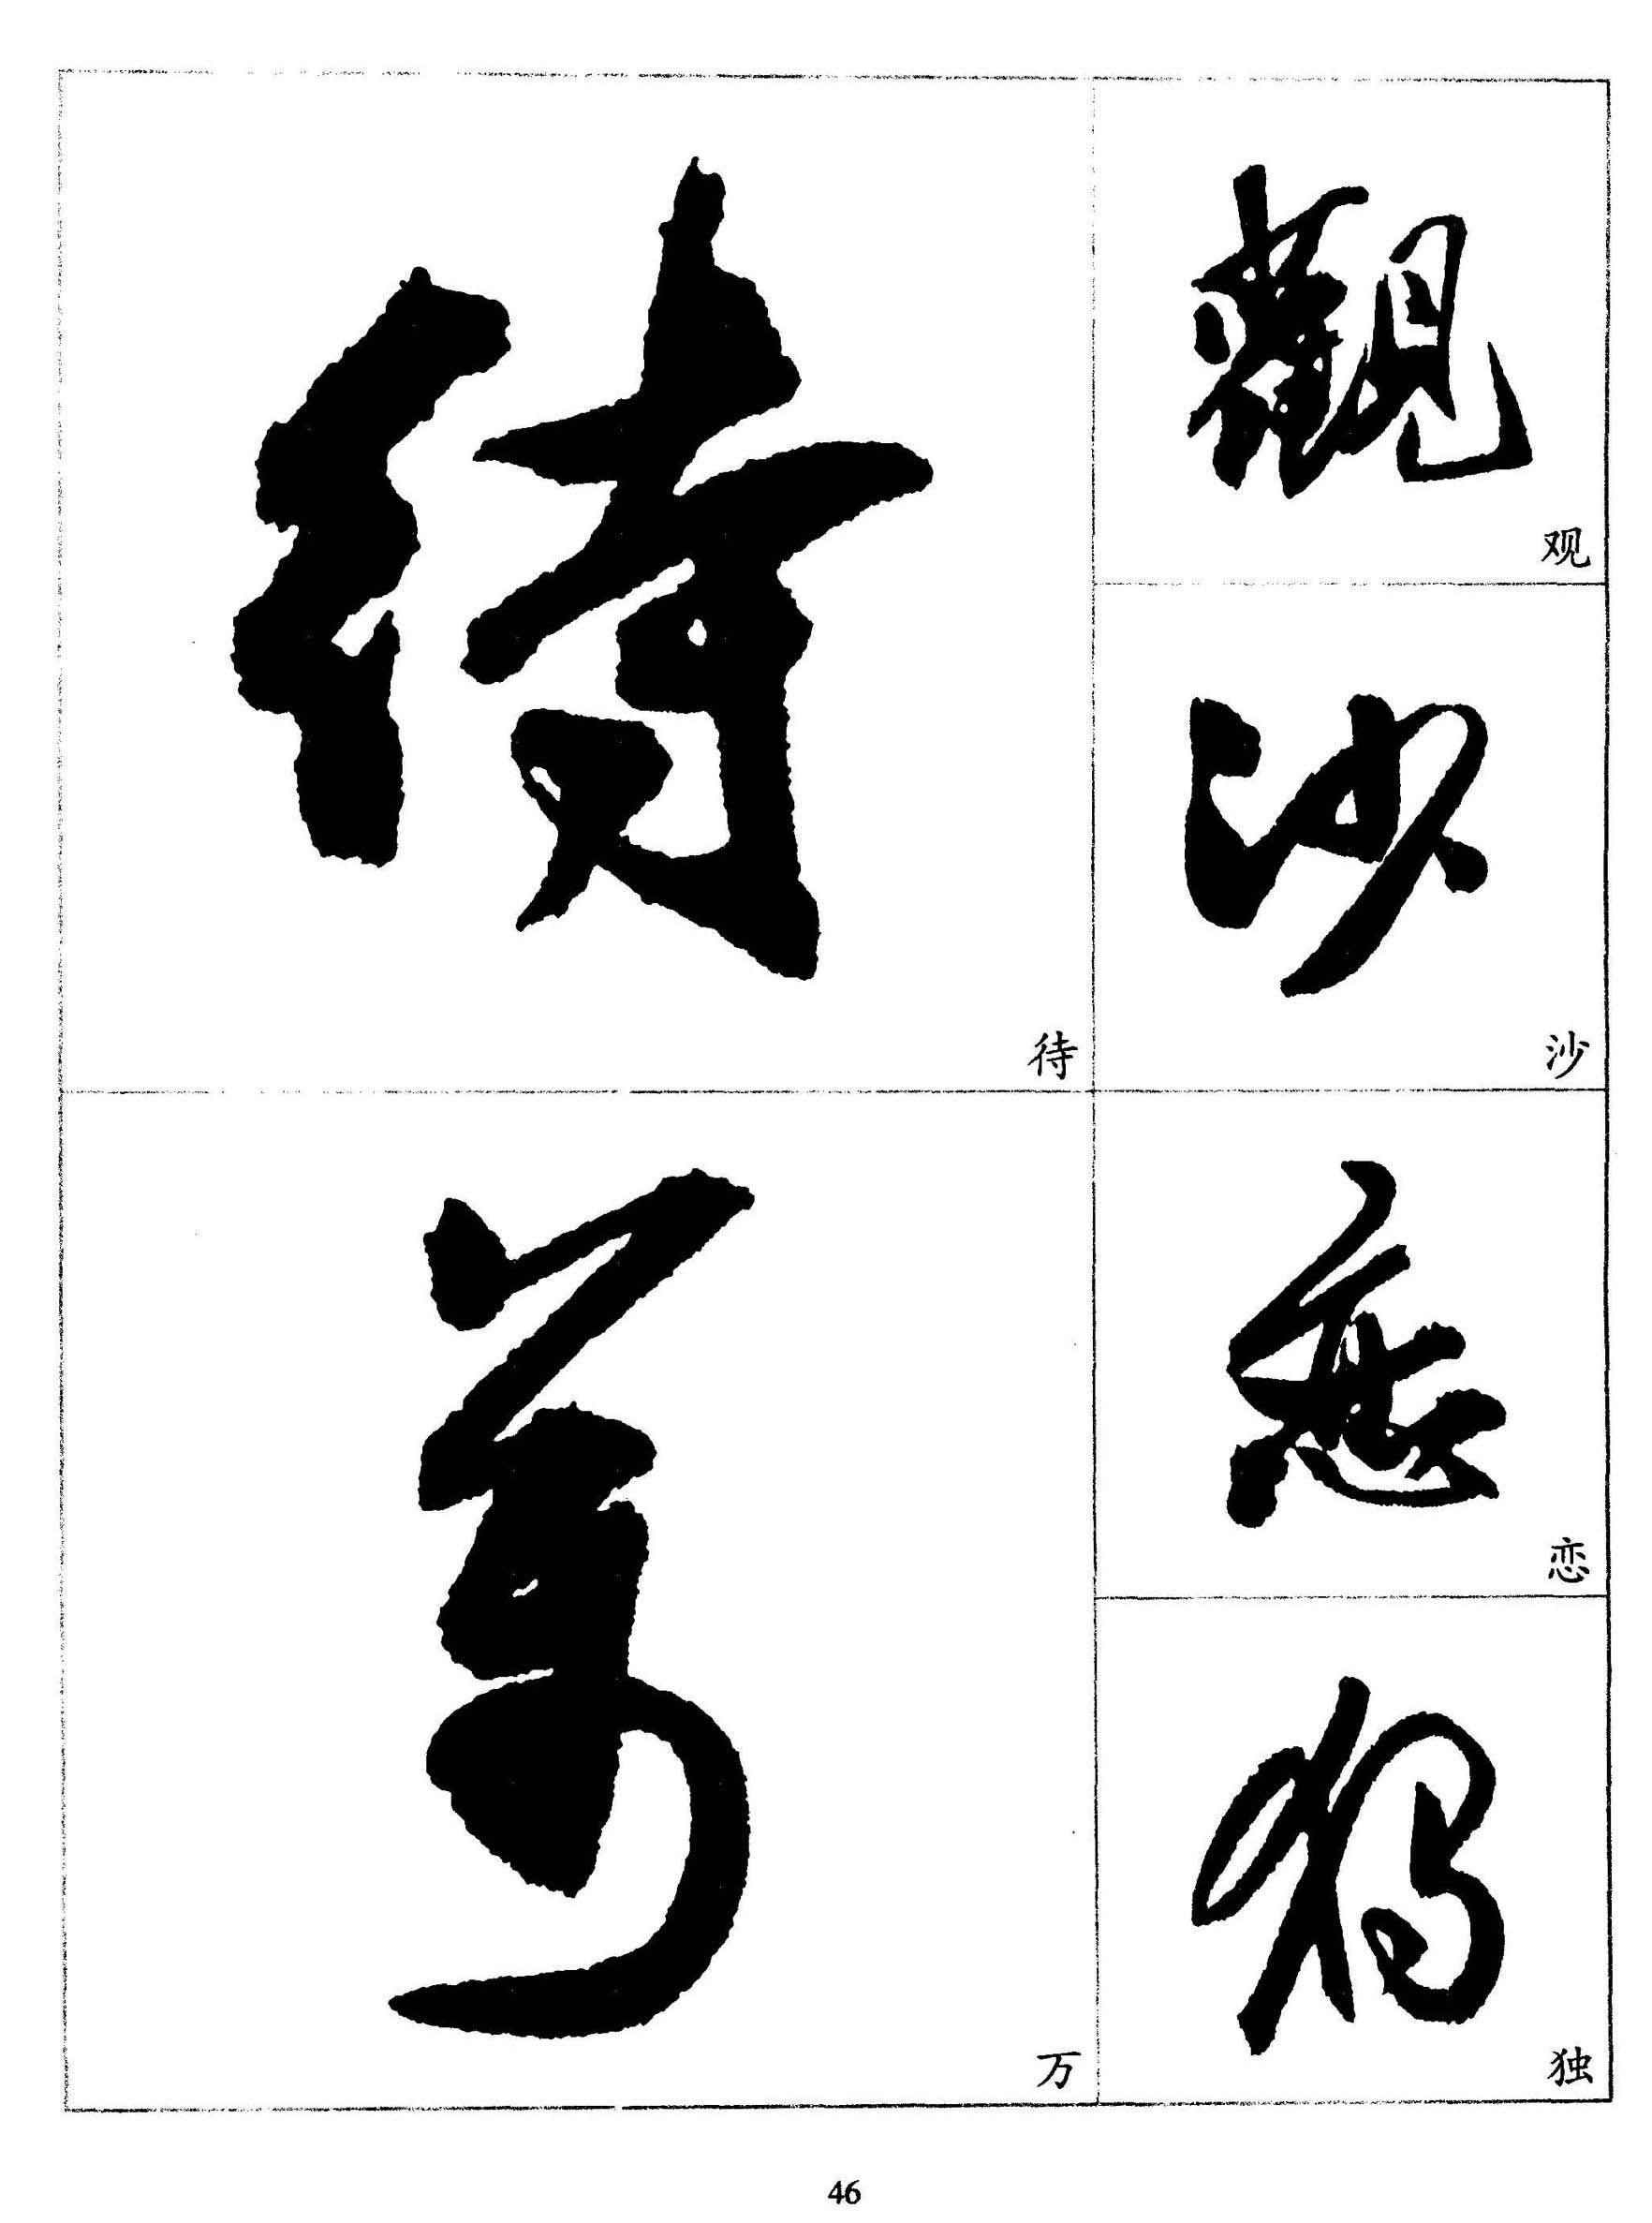 待
待
萬
万
觀
观
沙
沙
戀
恋
獨
独
46